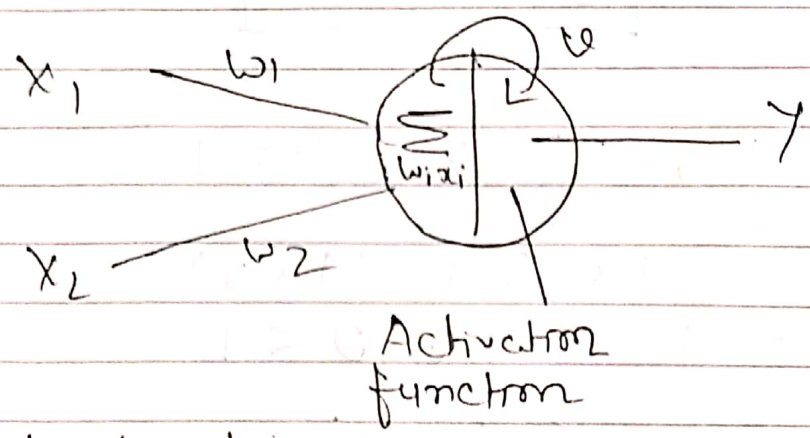 X1
W1
v
Σ
wixi
Y
X2
W2
Activation
function